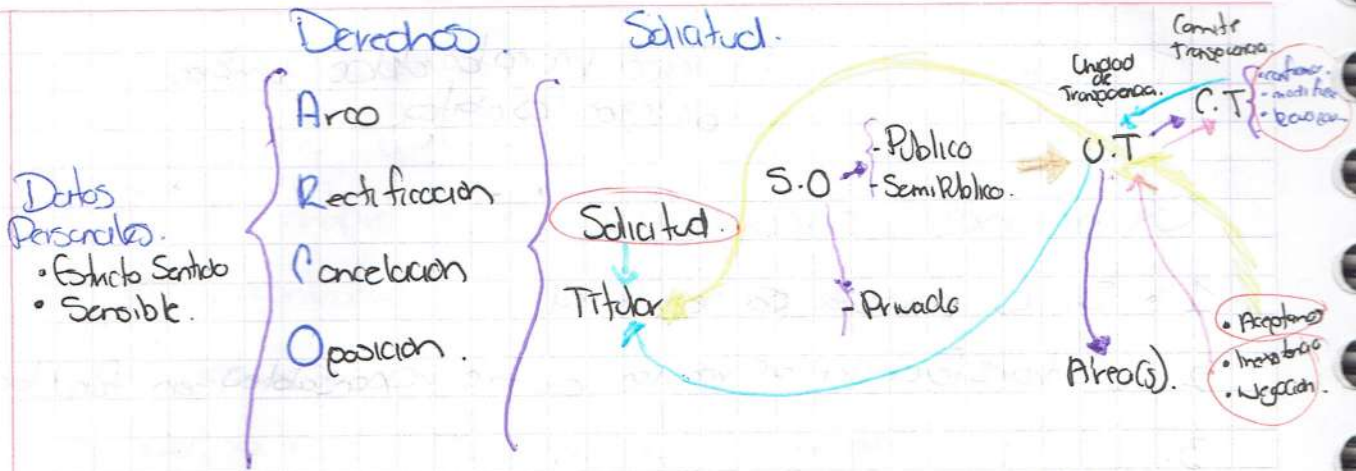 Derechos.
Solicitud.
Datos
Personales.
• Estricto Sentido
• Sensible.
Arco
Rectificación
Cancelación
Oposición.
Solicitud.
Titular
S.O
- Público
- SemiPúblico.
- Privado
Unidad
de
Transparencia.
U.T
Área(s).
Comité
Transparencia.
C.T
• confirmar.
• modificar
• revocar
• Aceptamos
• Inexistencia
• Negación.